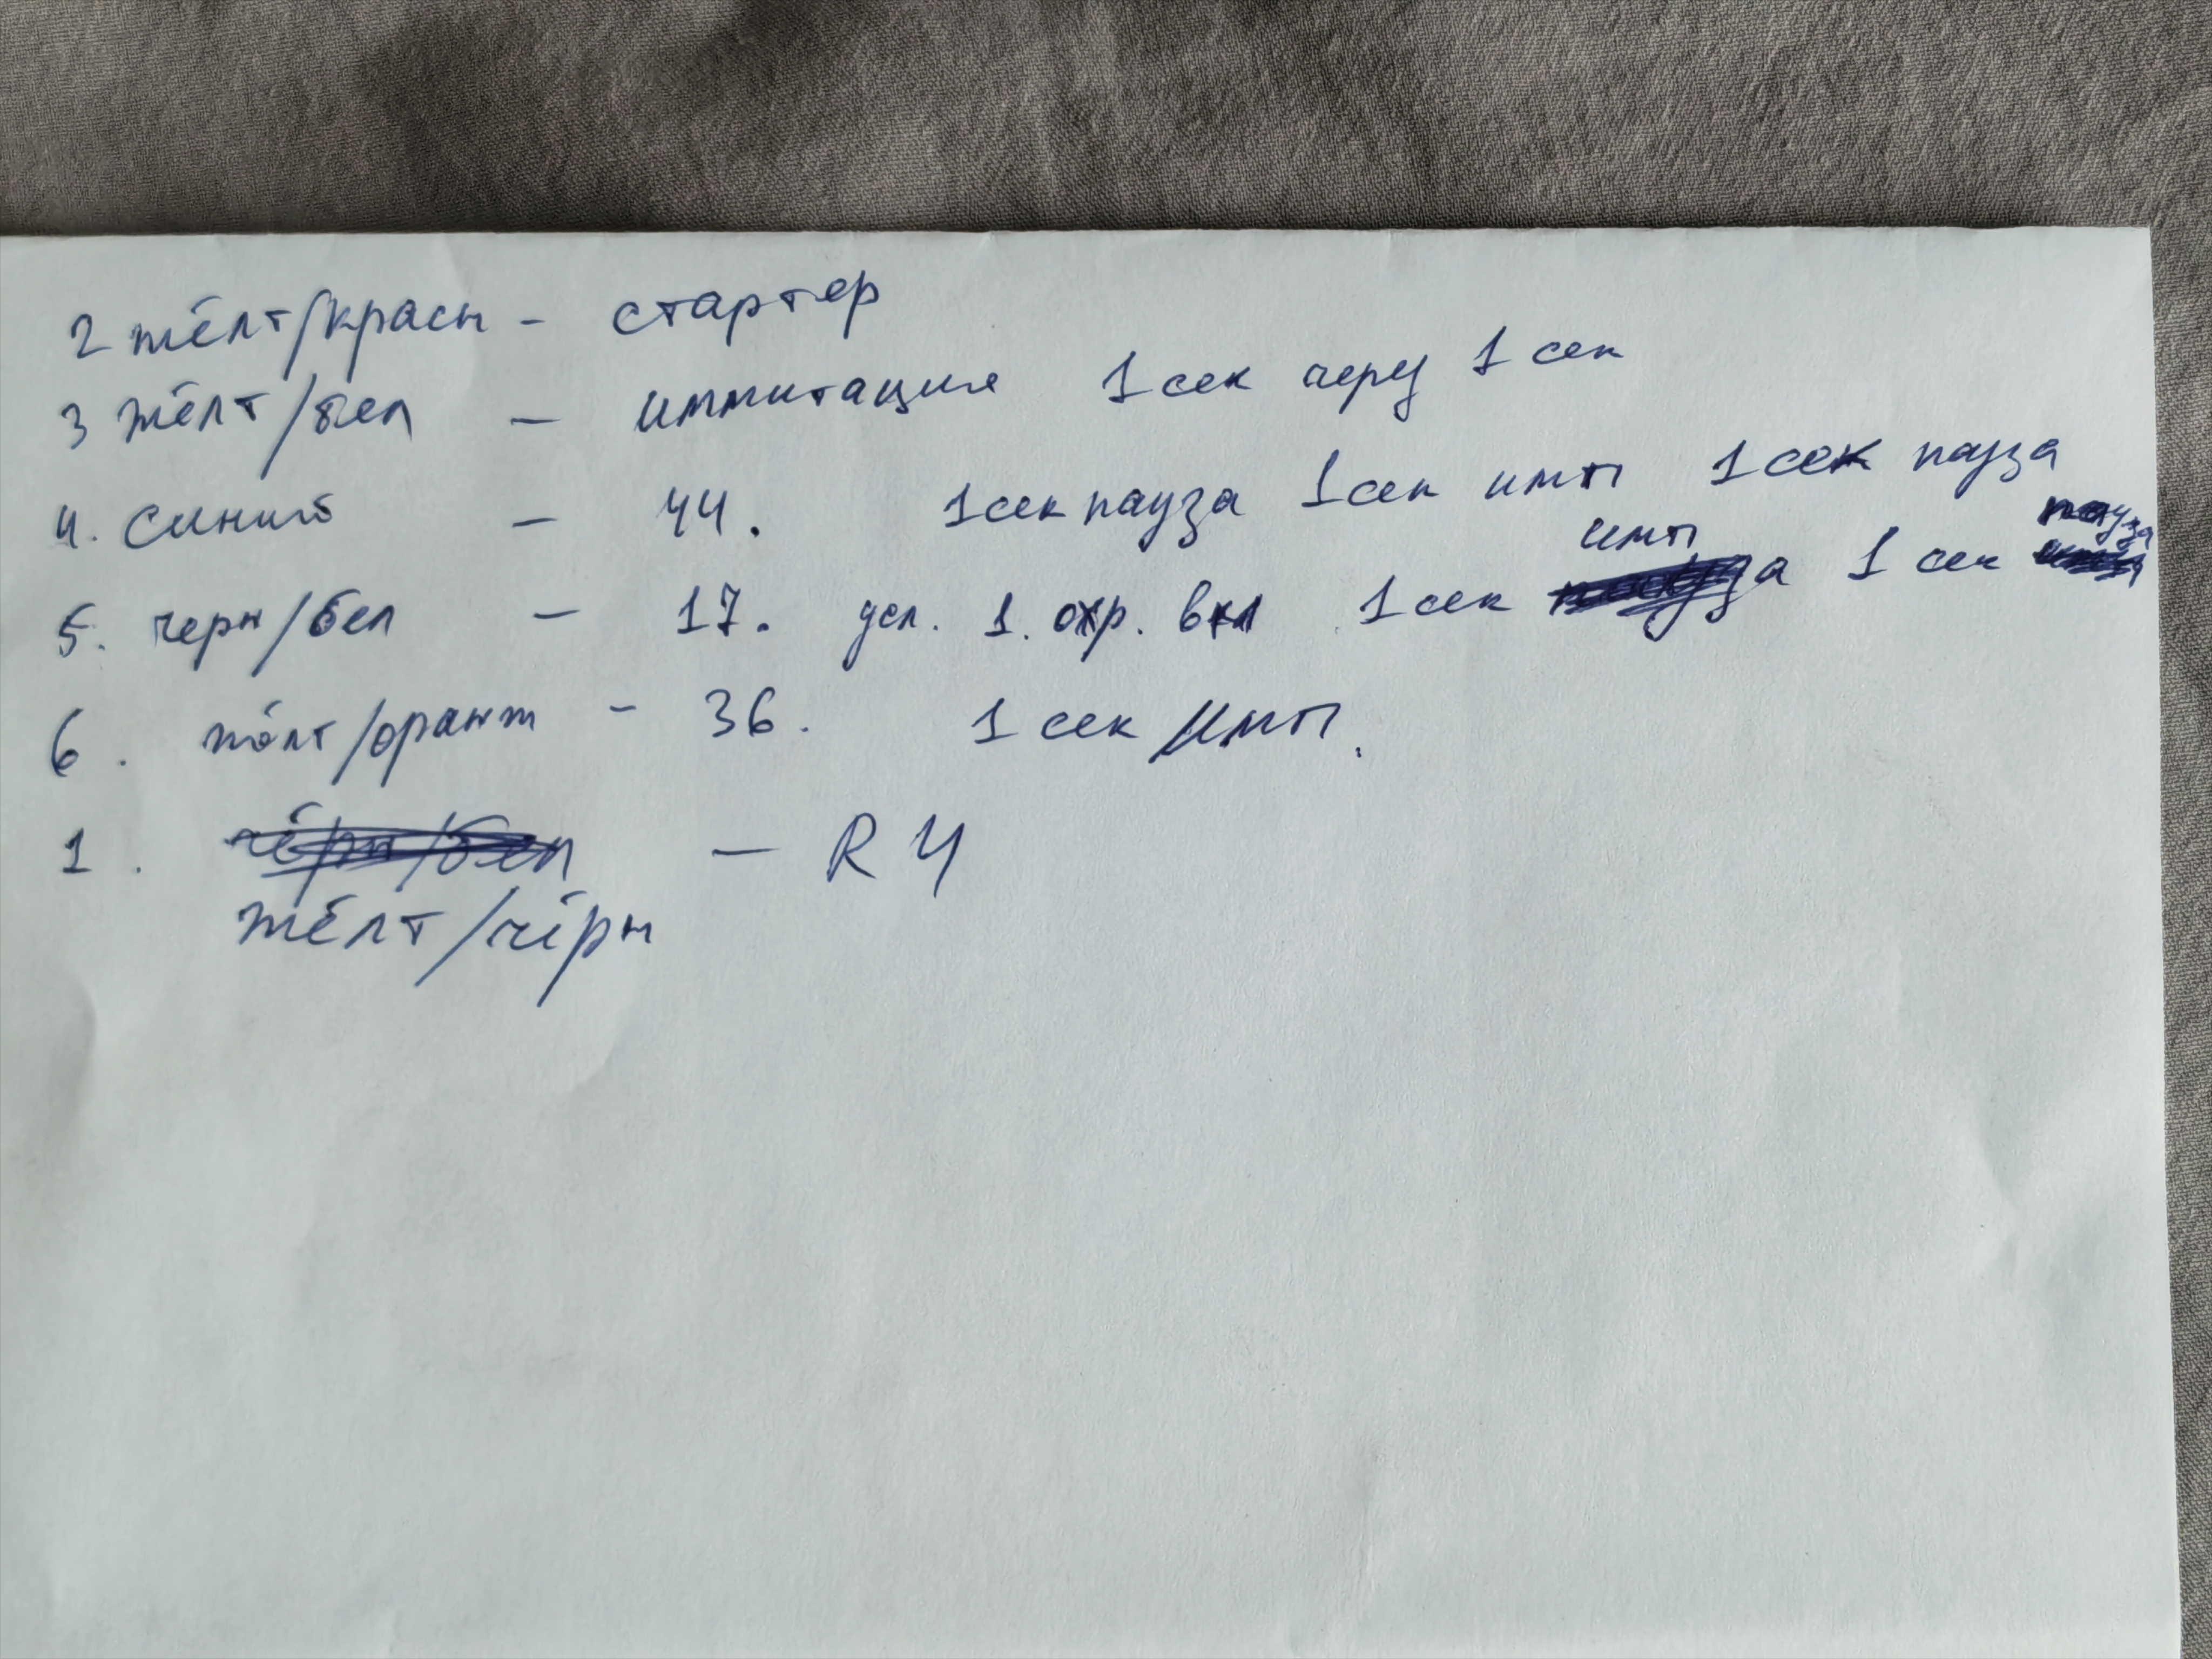 2 жёлт/красн - стартер
3 жёлт/бел - иммитация 1 сек через 1 сек
4. синий - 44. 1 сек пауза 1 сек имп 1 сек пауза
имп пауза
5. черн/бел - 17. усл. 1. охр. вкл 1 сек 1 сек
6. жёлт/оранж - 36. 1 сек имп.
1. чёрн/бел - R4
жёлт/чёрн